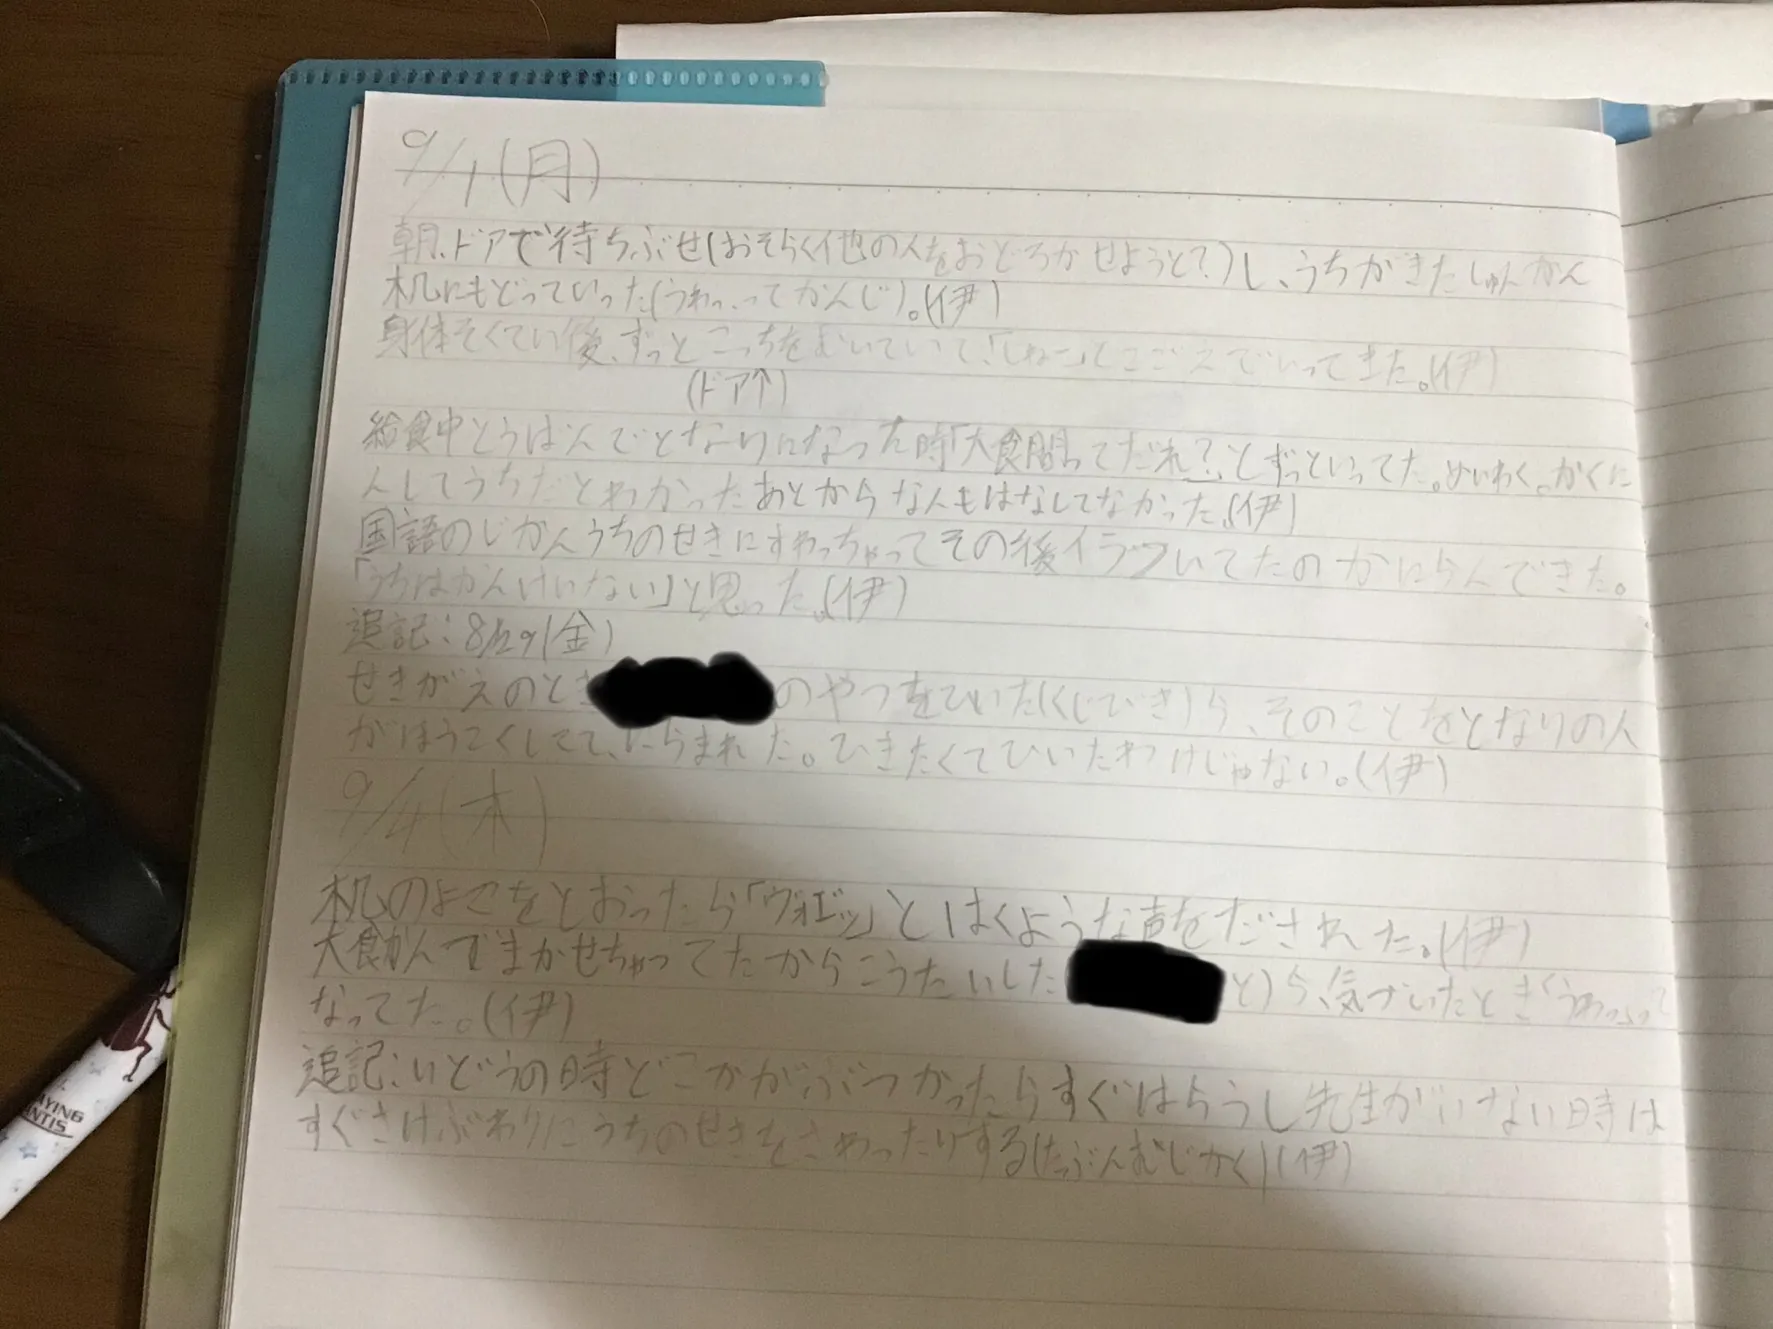 9/1(月)
朝、ドアで待ちぶせ(おそらく他の人をおどろかせようと?)し、うちがきたしゅんかん
机にもどっていった(うわっ、ってかんじ)。(伊)
身体そくてい後、ずっとこっちをむいていて、「しねー」とこごえでいってきた。(伊)
(ドア↑)
給食中とうばんでとなりになった時「大食間ってだれ?」とずっといってた。めいわく。かくに
んしてうちだとわかったあとからなんもはなしてなかった。(伊)
国語のじかんうちのせきにすわっちゃってその後イラついてたのかにらんできた。
「うちはかんけいない」と思った。(伊)
追記:8/29(金)
せきがえのとき のやつをひいた(くじびき)ら、そのことをとなりの人
がほうこくしてて、にらまれた。ひきたくてひいたわけじゃない。(伊)
9/4(木)
机のよこをとおったら「ヴォエッ」とはくような声をだされた。(伊)
大食かんでまかせちゃってたからこうたいした と)ら、気づいたとき「うわっ」って
なってた。(伊)
追記:いどうの時どこかがぶつかったらすぐはらうし先生がいない時は
すぐさけぶわりにうちのせきをさわったりする(たぶんむじかく)(伊)
AYING
ANTIS